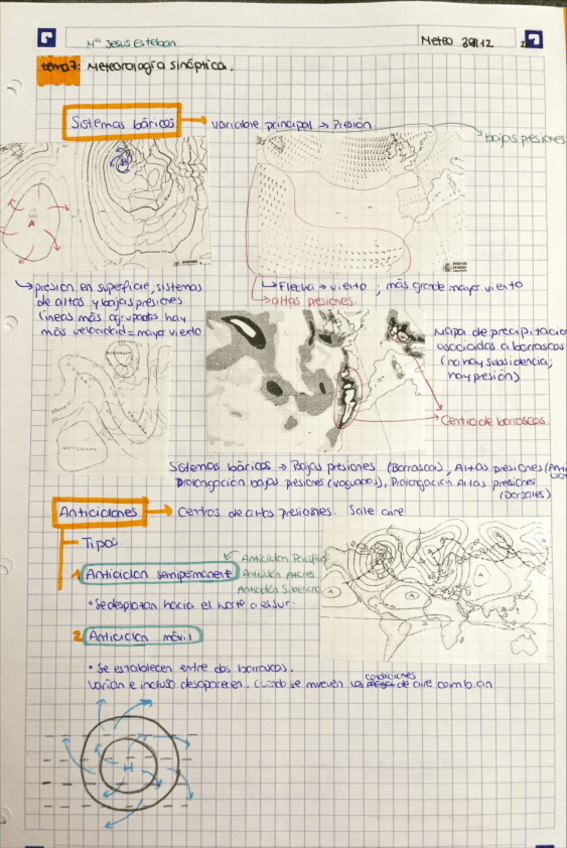 Mª Jesús Esteban
Meteo
tema 7: Meteorología sinóptica.
Sistemas báricos → variable principal → Presión
bajas presiones
A
B
↳ presión en superficie, sistemas
de altas y bajas presiones
líneas más agrupadas hay
más velocidad = mayor viento
↳ Flecha → viento, más grande mayor viento
→ altas presiones
Mapa de precipitacion
asociadas a borrascas
(no hay subsidencia;
hay presión)
→ Centro de borrascas
Sistemas báricos → Bajas presiones (Borrascas), Altas presiones
Prolongación bajas presiones (vaguadas), Prolongación Altas presiones
(Dorsales)
Anticiclones → Centros de altas presiones. Sale aire
Tipos
Anticiclón Pacífico
1 Anticiclon semipermanente
Anticiclón Azores
Anticiclón Siberiano
• Se desplazan hacia el norte o el sur.
2 Anticiclon móvil
• Se establecen entre dos borrascas.
condiciones
varían e incluso desaparecen. Cuando se mueven las de aire cambian
H